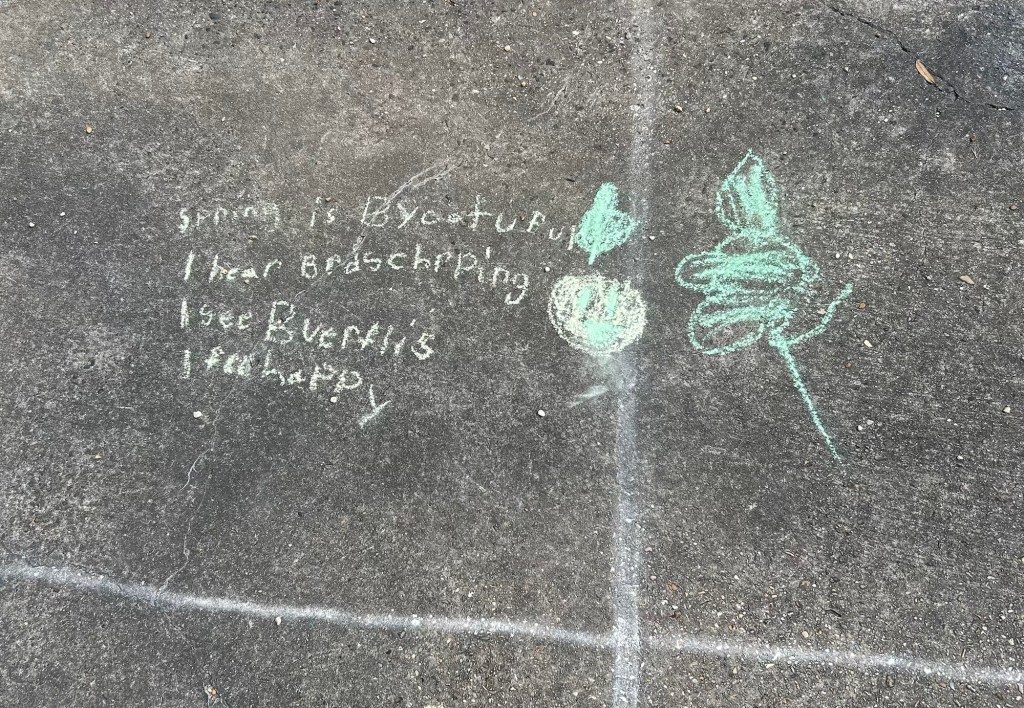 spring is Bycotuful
I hear Brdschrping
I see Buerflis
I feel happy